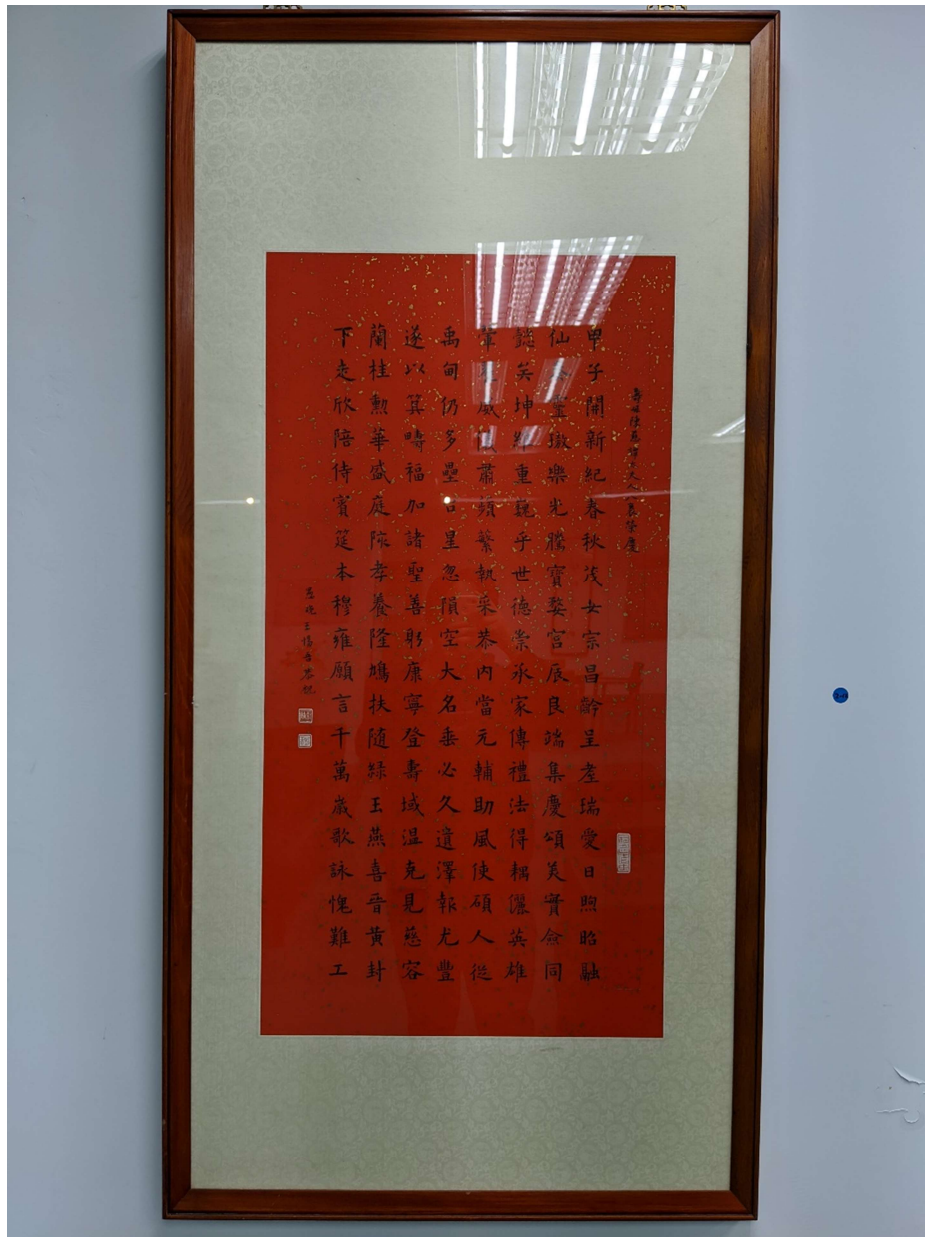 太夫人八袠榮慶
甲子開新紀春秋茂女宗昌齡呈瑞愛日煦昭融
仙璈樂光騰寶婺宮辰良端集慶頌美實僉同
懿矣坤維重巍乎世德崇承家傳禮法得耦儷英雄
翬翟威儀肅蘋蘩執采恭內當元輔助風使碩人從
禹甸仍多壘台星忽隕空大名垂必久遺澤報尤豐
遂以箕疇福加諸聖善躬康寧登壽域温克見慈容
蘭桂勳華盛庭陔孝養隆鳩扶隨綠玉燕喜晉黃封
下走欣陪侍賓筵本穆雍願言千萬歲歌詠愧難工
晚王惕吾恭祝